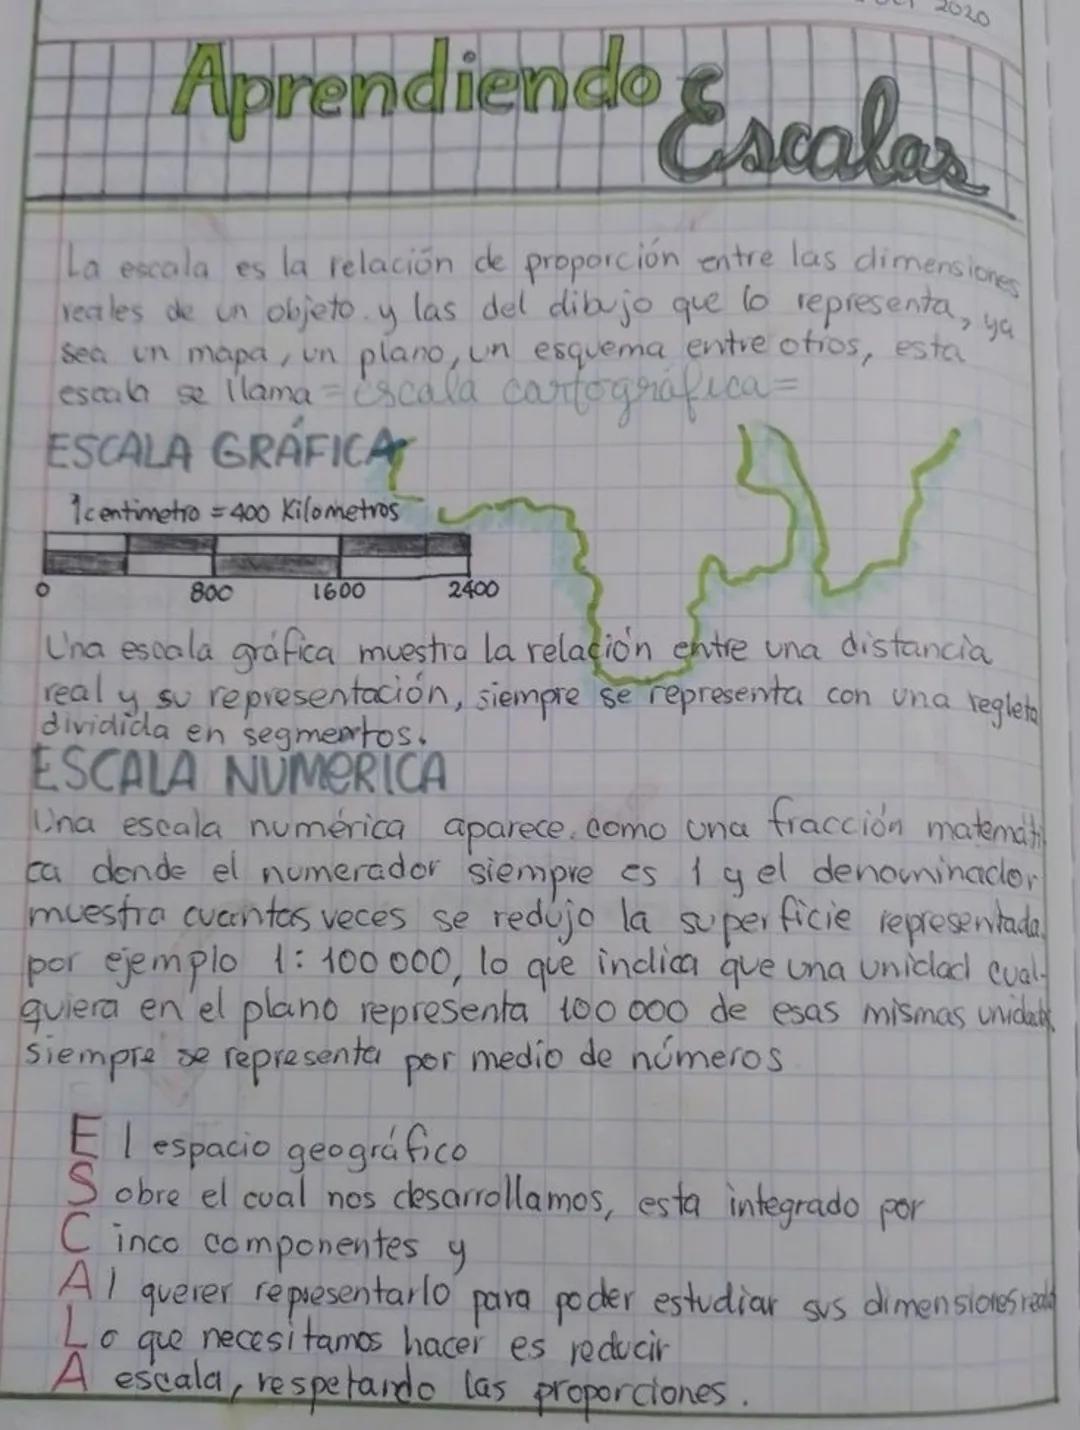 2020
Aprendiendo
Escalas
La escala es la relación de proporción entre las dimensiones
reales de un objeto y las del dibujo que lo representa, ya
sea un mapa, un plano, un esquema entre otros, esta
escala se llama = escala cartográfica =
ESCALA GRÁFICA
1 centimetro = 400 Kilometros
0 800 1600 2400
Una escala gráfica muestra la relación entre una distancia
real y su representación, siempre se representa con una regleta
dividida en segmentos.
ESCALA NUMERICA
Una escala numérica aparece como una fracción matemáti
ca donde el numerador siempre es 1 y el denominador
muestra cuantas veces se redujo la superficie representada.
por ejemplo 1: 100 000, lo que indica que una unidad cual-
quiera en el plano representa 100 000 de esas mismas unidades.
siempre se representa por medio de números
El espacio geográfico
Sobre el cual nos desarrollamos, esta integrado por
Cinco componentes y
Al querer representarlo para poder estudiar sus dimensiones reales
Lo que necesitamos hacer es reducir
A escala, respetando las proporciones.